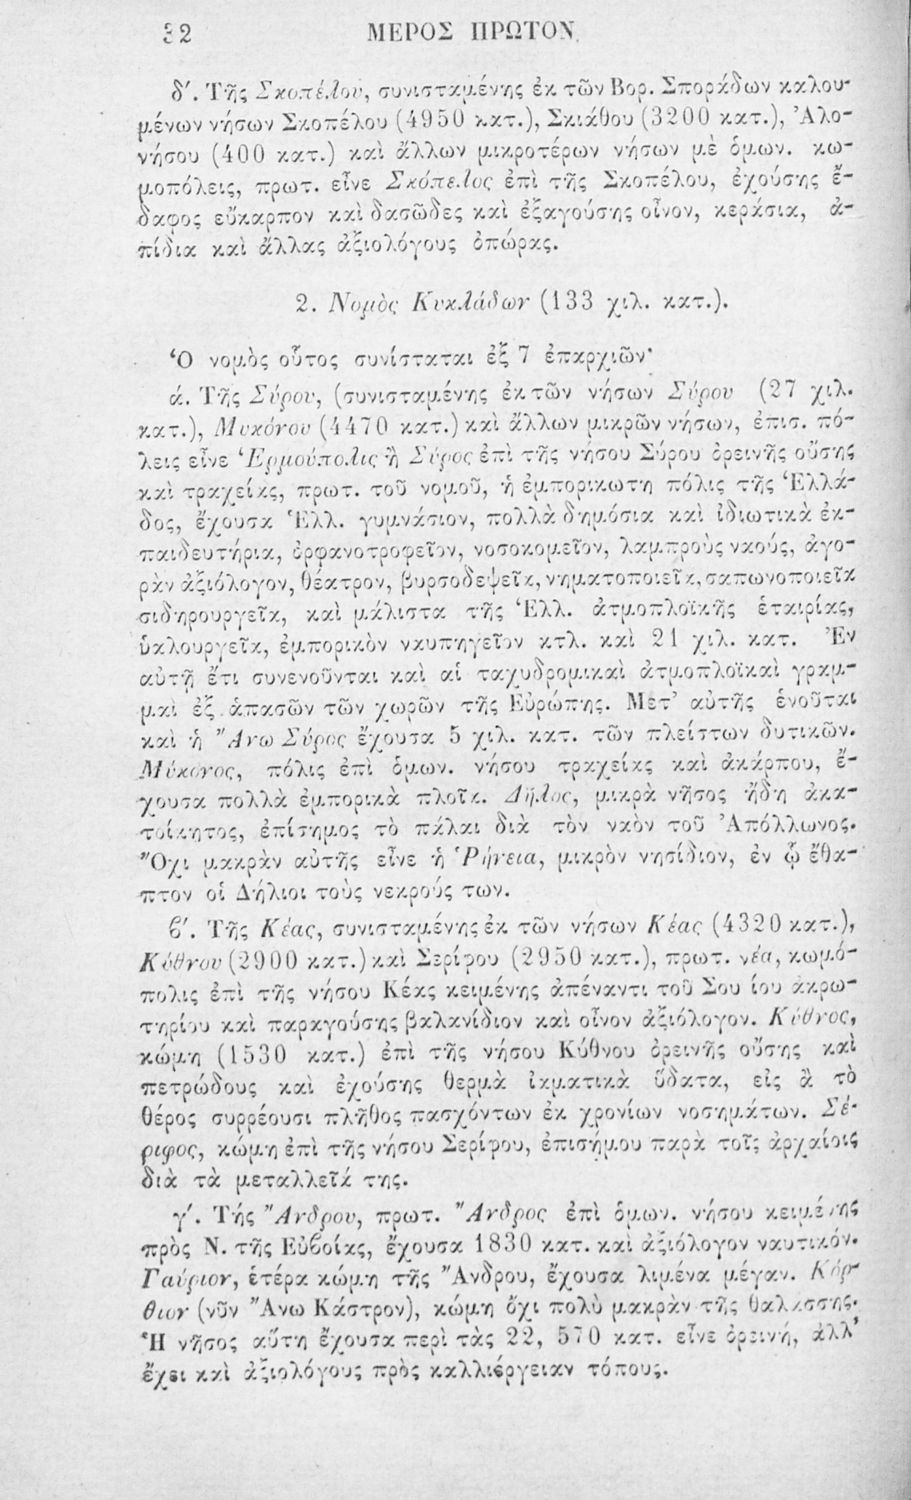 32 ΜΕΡΟΣ ΠΡΩΤΟΝ.
δ΄. Τῆς Σκοπέλου, συνισταμένης ἐκ τῶν Βορ. Σποράδων καλου-
μένων νήσων Σκοπέλου (4950 κατ.), Σκιάθου (3200 κατ.), Ἀλο-
νήσου (400 κατ.) καὶ ἄλλων μικροτέρων νήσων μὲ ὁμων. κω-
μοπόλεις, πρωτ. εἶνε Σκόπελος ἐπὶ τῆς Σκοπέλου, ἐχούσης ἔ-
δαφος εὔκαρπον καὶ δασῶδες καὶ ἐξαγούσης οἶνον, κεράσια, ἀ-
πίδια καὶ ἄλλας ἀξιολόγους ὀπώρας.
2. Νομὸς Κυκλάδων (133 χιλ. κατ.).
Ὁ νομὸς οὗτος συνίσταται ἐξ 7 ἐπαρχιῶν·
ά. Τῆς Σύρου, (συνισταμένης ἐκ τῶν νήσων Σύρου (27 χιλ.
κατ.), Μυκόνου (4470 κατ.) καὶ ἄλλων μικρῶν νήσων, ἐπισ. πό-
λεις εἶνε Ἑρμούπολις ἢ Σύρος ἐπὶ τῆς νήσου Σύρου ὀρεινῆς οὔσης
καὶ τραχείας, πρωτ. τοῦ νομοῦ, ἡ ἐμπορικωτη πόλις τῆς Ἑλλά-
δος, ἔχουσα Ἑλλ. γυμνάσιον, πολλὰ δημόσια καὶ ἰδιωτικὰ ἐκ-
παιδευτήρια, ὀρφανοτροφεῖον, νοσοκομεῖον, λαμπροὺς ναούς, ἀγο-
ρὰν ἀξιόλογον, θέατρον, βυρσοδεψεῖα, νηματοποιεῖα, σαπωνοποιεῖα
σιδηρουργεῖα, καὶ μάλιστα τῆς Ἑλλ. ἀτμοπλοϊκῆς ἑταιρίας,
ὑαλουργεῖα, ἐμπορικὸν ναυπηγεῖον κτλ. καὶ 21 χιλ. κατ. Ἐν
αὐτῇ ἔτι συνενοῦνται καὶ αἱ ταχυδρομικαὶ ἀτμοπλοϊκαὶ γραμ-
μαὶ ἐξ ἁπασῶν τῶν χωρῶν τῆς Εὐρώπης. Μετ’ αὐτῆς ἑνοῦται
καὶ ἡ Ἄνω Σύρος ἔχουσα 5 χιλ. κατ. τῶν πλείστων δυτικῶν.
Μύκονος, πόλις ἐπὶ ὁμων. νήσου τραχείας καὶ ἀκάρπου, ἔ-
χουσα πολλὰ ἐμπορικὰ πλοῖα. Δῆλος, μικρὰ νῆσος ἤδη ἀκα-
τοίκητος, ἐπίσημος τὸ πάλαι διὰ τὸν ναὸν τοῦ Ἀπόλλωνος.
Ὄχι μακρὰν αὐτῆς εἶνε ἡ Ῥήνεια, μικρὸν νησίδιον, ἐν ᾧ ἔθα-
πτον οἱ Δήλιοι τοὺς νεκρούς των.
β΄. Τῆς Κέας, συνισταμένης ἐκ τῶν νήσων Κέας (4320 κατ.),
Κύθνου (2900 κατ.) καὶ Σερίφου (2950 κατ.), πρωτ. νέα, κωμό-
πολις ἐπὶ τῆς νήσου Κέας κειμένης ἀπέναντι τοῦ Σου ίου ἀκρω-
τηρίου καὶ παραγούσης βαλανίδιον καὶ οἶνον ἀξιόλογον. Κύθνος,
κώμη (1530 κατ.) ἐπὶ τῆς νήσου Κύθνου ὀρεινῆς οὔσης καὶ
πετρώδους καὶ ἐχούσης θερμὰ ἰαματικὰ ὕδατα, εἰς ἃ τὸ
θέρος συρρέουσι πλῆθος πασχόντων ἐκ χρονίων νοσημάτων. Σέ-
ριφος, κώμη ἐπὶ τῆς νήσου Σερίφου, ἐπισήμου παρὰ τοῖς ἀρχαίοις
διὰ τὰ μεταλλεῖά της.
γ΄. Τής Ἄνδρου, πρωτ. Ἄνδρος ἐπὶ ὁμων. νήσου κειμένης
πρὸς Ν. τῆς Εὐβοίας, ἔχουσα 1830 κατ. καὶ ἀξιόλογον ναυτικόν.
Γαύριον, ἑτέρα κώμη τῆς Ἄνδρου, ἔχουσα λιμένα μέγαν. Κόρ-
θιον (νῦν Ἄνω Κάστρον), κώμη ὄχι πολὺ μακρὰν τῆς θαλάσσης.
Ἡ νῆσος αὕτη ἔχουσα περὶ τὰς 22, 570 κατ. εἶνε ὀρεινή, ἀλλ’
ἔχει καὶ ἀξιολόγους πρὸς καλλιέργειαν τόπους.